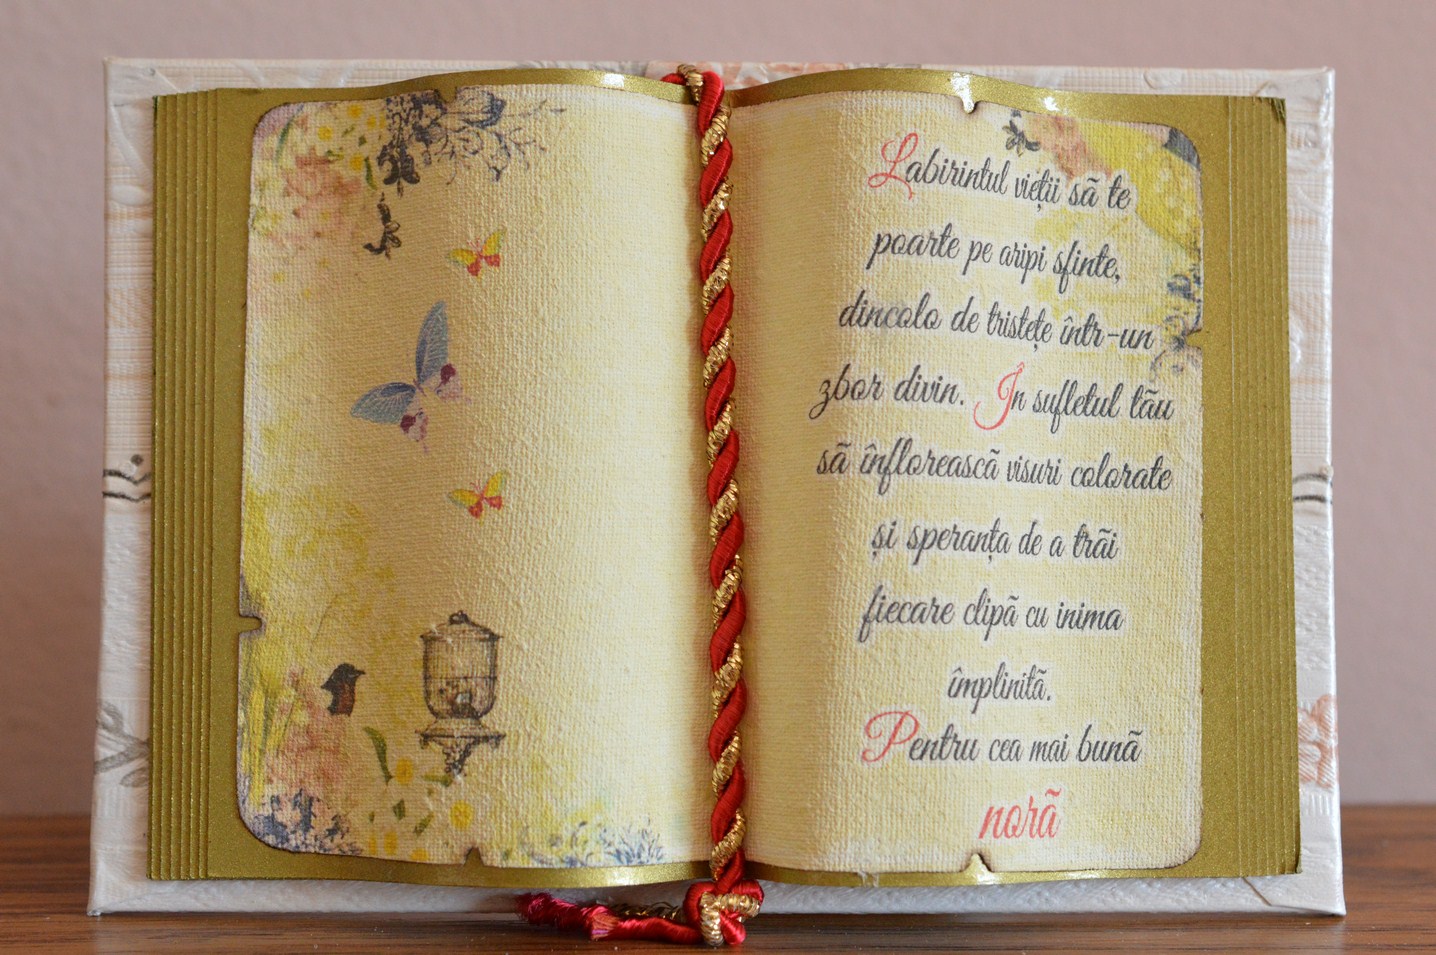 Labirintul vieții să te
poarte pe aripi sfinte,
dincolo de tristețe într-un
zbor divin. În sufletul tău
să înflorească visuri colorate
și speranța de a trăi
fiecare clipă cu inima
împlinită.
Pentru cea mai bună
noră